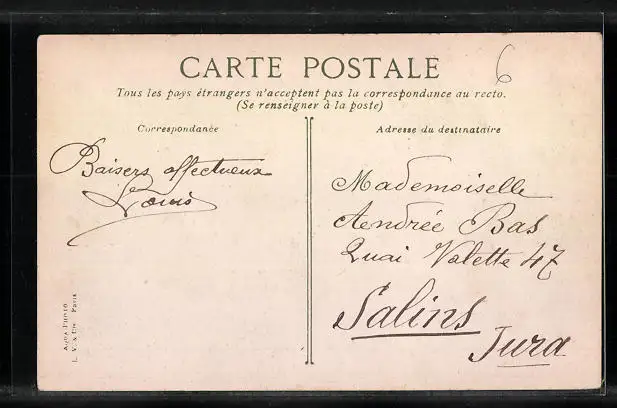 CARTE POSTALE
6
Tous les pays étrangers n'acceptent pas la correspondance au recto.
(Se renseigner à la poste)
Correspondance
Baisers affectueux
Louis
Adresse du destinataire
Mademoiselle
Andrée Bas
Quai Valette 47
Salins
Jura
AQUA-PHOTO
L. V. & Cie Paris